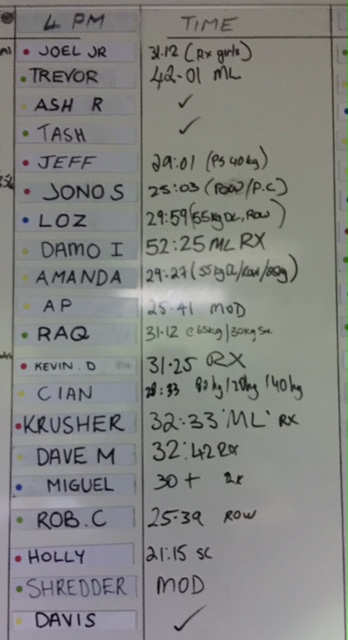 4 PM TIME
JOEL JR 31.12 (Rx girls)
TREVOR 42.01 ML
ASH R ✓
TASH ✓
JEFF 29:01 (Ps 40kg)
JONO S 25:03 (ROW/P.C)
LOZ 29:59 (55kg DL, ROW)
DAMO I 52:25 ML RX
AMANDA 29:27 (55kg DL/ROW/
AP 25.41 MOD
RAQ 31.12 65kg/30kg Sn.
KEVIN.D 31.25 RX
CIAN 28:33
KRUSHER 32:33 'ML' RX
DAVE M 32:42 RX
MIGUEL 30+ RX
ROB.C 25.39 ROW
HOLLY 21:15 SC
SHREDDER MOD
DAVIS ✓